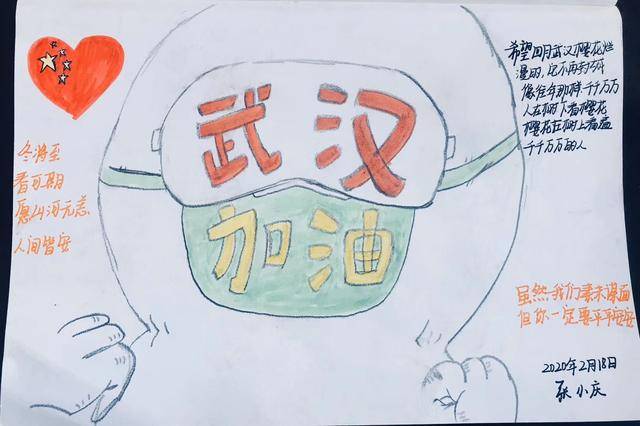 武汉
加油
希望四月武汉樱花烂
漫时,它不再封城
像往年那样,千千万万
人在树下看樱花
樱花在树上看着
千千万万的人
冬将至
春可期
愿山河无恙
人间皆安
虽然我们素未谋面
但你一定要平平安安
2020年2月18日
张小庆